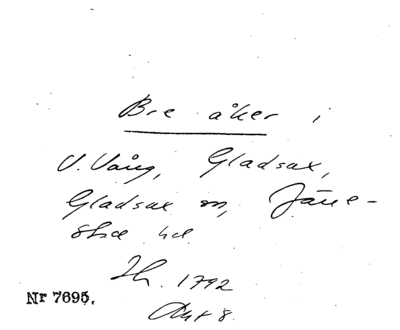 Bre åker i
V. Vång, Gladsax,
Gladsax sn, Järre-
stad hd.
Sh. 1792
Nr 7695.
Akt 8.